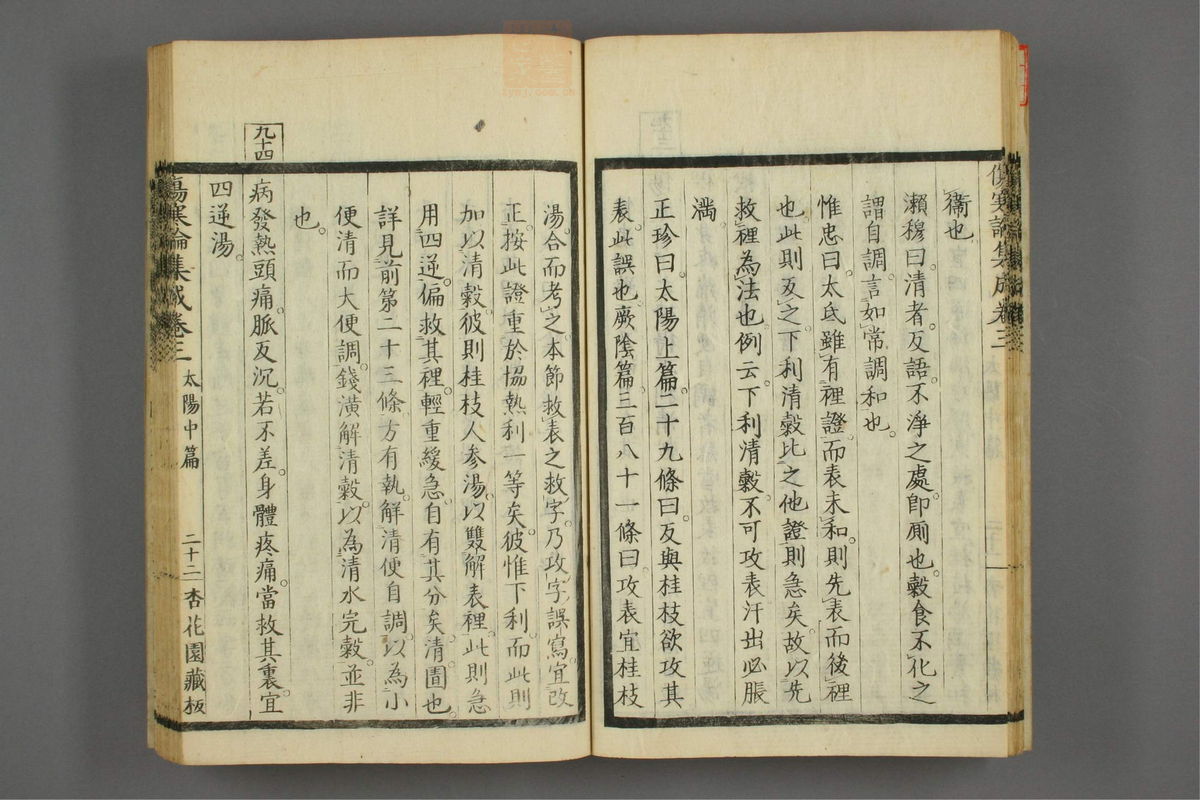 傷寒論集成卷三
衞也
瀨穆曰。清者。反語。不淨之處即厠也。穀食不化之
謂自調言如常調和也。
惟忠曰。太氐雖有裡證。而表未和。則先表而後裡
也。此則反之。下利清穀比之他證則急矣。故以先
救裡為法也。例云。下利清穀。不可攻表汗出必脹
滿。
正珍曰。太陽上篇。二十九條曰。反與桂枝欲攻其
表。此誤也。厥陰篇。三百八十一條曰。攻表宜桂枝
湯。合而考之。本節救表之救字。乃攻字。誤寫。宜改
正。按此證重於協熱利一等矣。彼惟下利。而此則
加以清穀。彼則桂枝人參湯。以雙解表裡。此則急
用四逆。偏救其裡。輕重緩急。自有其分矣。清圊也。
詳見前第二十三條。方有執。解清便自調。以為小
便清而大便調。錢潢解清穀。以為清水完穀。並非
也。
九十四
病發熱頭痛。脈反沉。若不差。身體疼痛。當救其裏。宜
四逆湯。
傷寒論集成卷三 太陽中篇 二十二 杏花園藏板